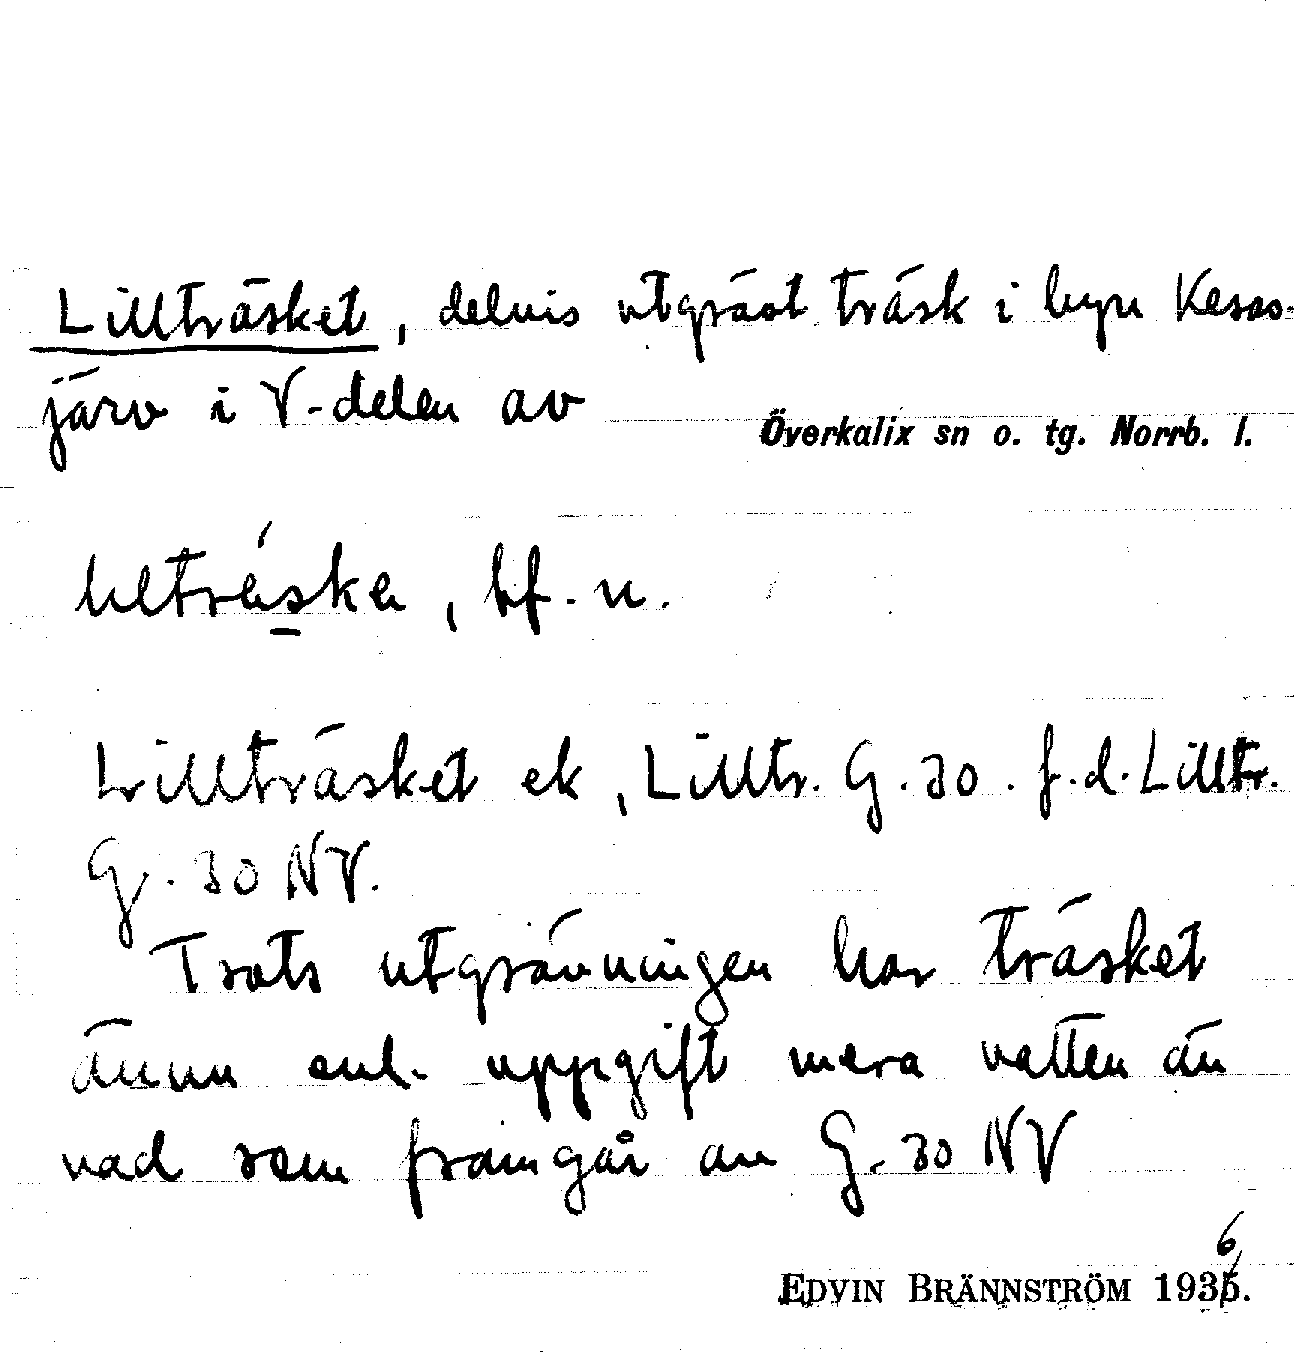 Lillträsket, delvis utgräst träsk i byn Kesas-
järv i V-delen av
Överkalix sn o. tg. Norrb. l.
bf. n.
Lillträsket ek, Lilltr. G. 30. f.d. Lilltr.
G. 30 NV.
Trots utgrävningen har träsket
ännu enl. uppgift mera vatten än
vad som framgår av G. 30 NV
6
EDVIN BRÄNNSTRÖM 1935.